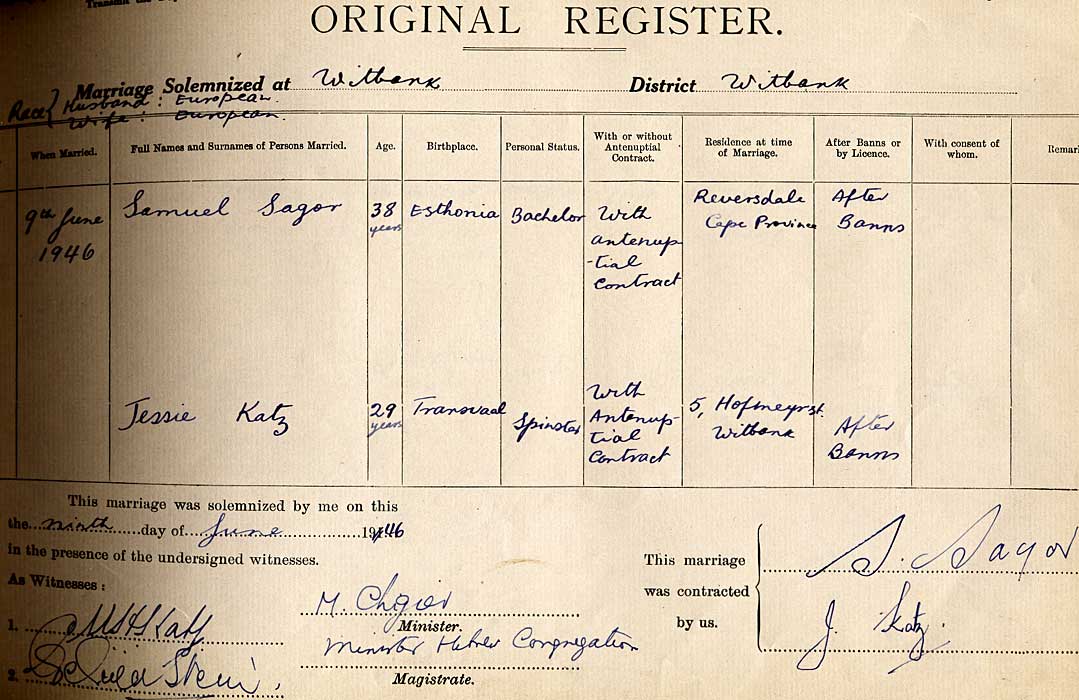 ORIGINAL REGISTER.
Marriage Solemnized at Witbank District Witbank
Race} Husband : European.
Wife : European.
When Married. Full Names and Surnames of Persons Married. Age. Birthplace. Personal Status. With or without Antenuptial Contract. Residence at time of Marriage. After Banns or by Licence. With consent of whom. Remar
9th June 1946 Samuel Sagor 38 years Esthonia Bachelor With antenup-tial Contract Reversdale Cape Province After Banns
Jessie Katz 29 years Transvaal Spinster With Antenup-tial Contract 5, Hofmeyr st. Witbank After Banns
This marriage was solemnized by me on this
the ninth day of June 1946
in the presence of the undersigned witnesses.
As Witnesses :
1.
2.
M.
Minister.
Minister Hebrew Congregation
Magistrate.
This marriage
was contracted
by us.
S. Sagor
J. Katz.